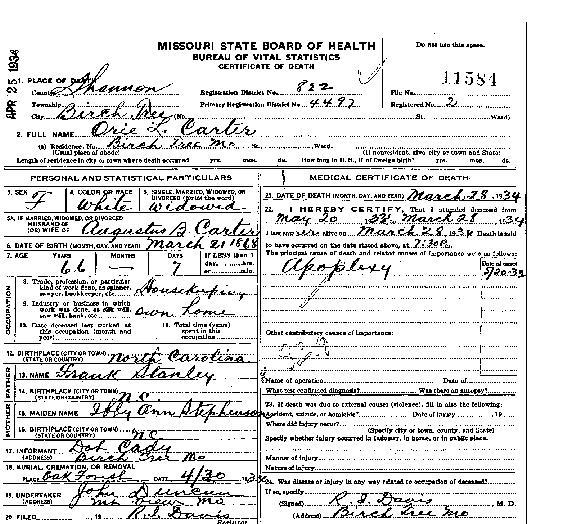 MISSOURI STATE BOARD OF HEALTH
BUREAU OF VITAL STATISTICS
CERTIFICATE OF DEATH
Do not use this space.
APR 25 1934
1. PLACE OF DEATH
County Shannon Registration District No. 822 File No. 11584
Township Primary Registration District No. 4497 Registered No. 2
City Birch Tree (No. St. Ward)
2. FULL NAME Orie L. Carter
(a) Residence, No. Birch Tree Mo St. Ward.
(Usual place of abode) (If nonresident, give city or town and State)
Length of residence in city or town where death occurred yrs. mos. ds. How long in U.S., if of foreign birth? yrs. mos. ds.
PERSONAL AND STATISTICAL PARTICULARS
3. SEX F 4. COLOR OR RACE White 5. SINGLE, MARRIED, WIDOWED, OR DIVORCED (write the word) Widowed
5A. IF MARRIED, WIDOWED, OR DIVORCED
HUSBAND OF (OR) WIFE OF Augustus B. Carter
6. DATE OF BIRTH (MONTH, DAY, AND YEAR) March 21 1868
7. AGE YEARS 66 MONTHS — DAYS 7 If LESS than 1
OCCUPATION
8. Trade, profession, or particular kind of work done, as spinner, sawyer, bookkeeper, etc. Housekeeping
9. Industry or business in which work was done, as silk mill, saw mill, bank, etc. own home
10. Date deceased last worked at this occupation (month and year) 11. Total time (years) spent in this occupation
12. BIRTHPLACE (CITY OR TOWN) (STATE OR COUNTRY) North Carolina
FATHER
13. NAME Frank Stanley
14. BIRTHPLACE (CITY OR TOWN) (STATE OR COUNTRY) N.C.
MOTHER
15. MAIDEN NAME Ann Stephenson
16. BIRTHPLACE (CITY OR TOWN) (STATE OR COUNTRY) NC
17. INFORMANT Cady
(ADDRESS) Birch Tree Mo
18. BURIAL, CREMATION, OR REMOVAL
PLACE Oak Forest DATE 4/30
19. UNDERTAKER John Duncan
(ADDRESS) Mt View Mo
20. FILED 19 R. I. Davis
Registrar
MEDICAL CERTIFICATE OF DEATH
21. DATE OF DEATH (MONTH, DAY, AND YEAR) March 28 1934
22. I HEREBY CERTIFY, That I attended deceased from
May 20 March 28 1934
I last saw alive on March 28 1934 Death is said
to have occurred on the date stated above, at 7:30
The principal cause of death and related causes of importance were as follows:
Date of onset
Apoplexy
Other contributory causes of importance:
Name of operation Date of
What test confirmed diagnosis? Was there an autopsy?
23. If death was due to external causes (violence), fill in also the following:
Accident, suicide, or homicide? Date of injury 19
Where did injury occur?
(Specify city or town, county, and State)
Specify whether injury occurred in industry, in home, or in public place.
Manner of injury
Nature of injury
24. Was disease or injury in any way related to occupation of deceased?
If so, specify
(Signed) R. I. Davis, M. D.
(Address) Birch Tree Mo